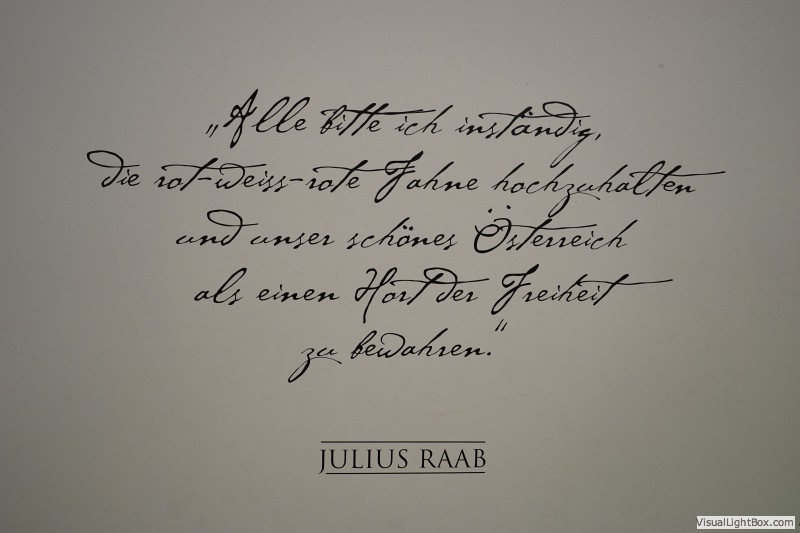 „Alle bitte ich inständig,
die rot-weiss-rote Fahne hochzuhalten
und unser schönes Österreich
als einen Hort der Freiheit
zu bewahren."
JULIUS RAAB
VisualLightBox.com